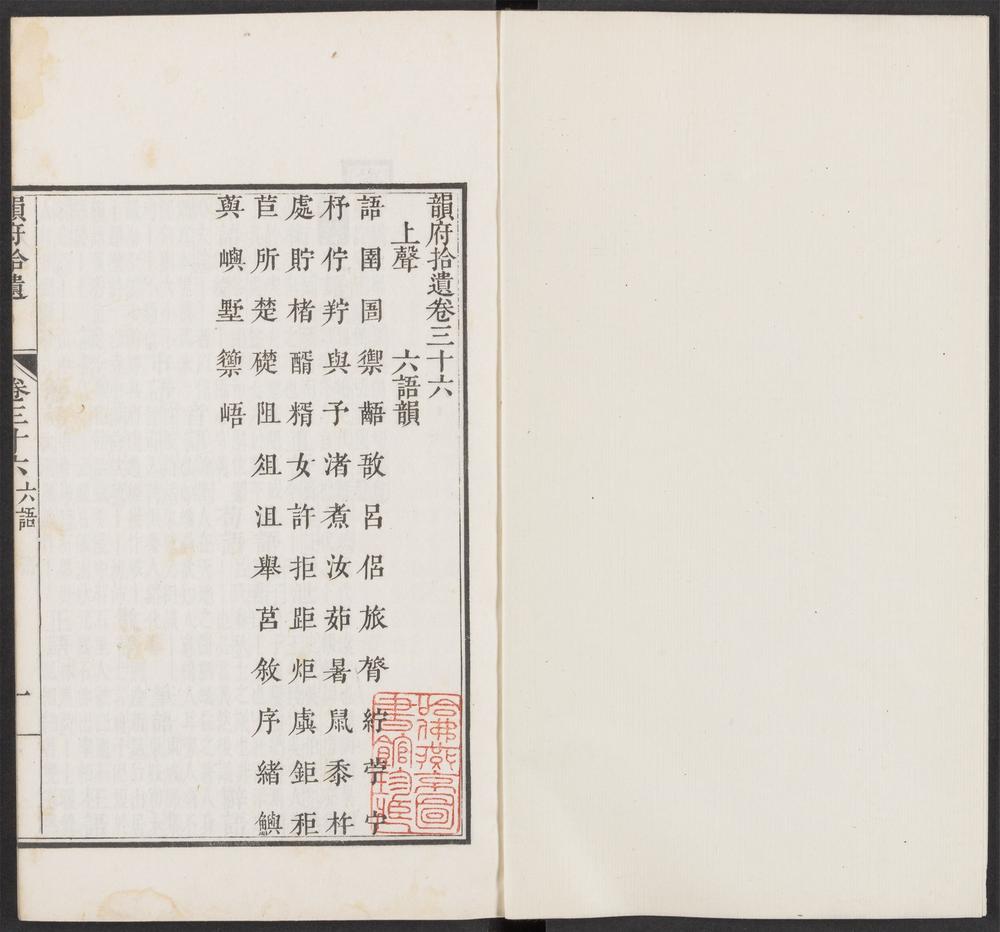 韻府拾遺卷三十六
上聲　六語韻
語圉圄禦齬敔呂侶旅膂紵苧宁
杼佇羜與予渚煮汝茹暑鼠黍杵
處貯楮醑糈女許拒距炬虡鉅秬
苣所楚礎阻俎沮舉莒敘序緒鱮
藇嶼墅籞㟓
韻府拾遺
卷三十六
六語
一
哈佛燕京圖
書館珍藏